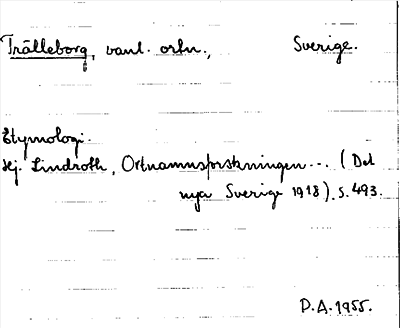 Trälleborg, vanl. ortn., Sverige.
Etymologi.
Hj. Lindroth, Ortnamnsforskningen... (Det
nya Sverige 1918). s. 493.
D.A. 1955.